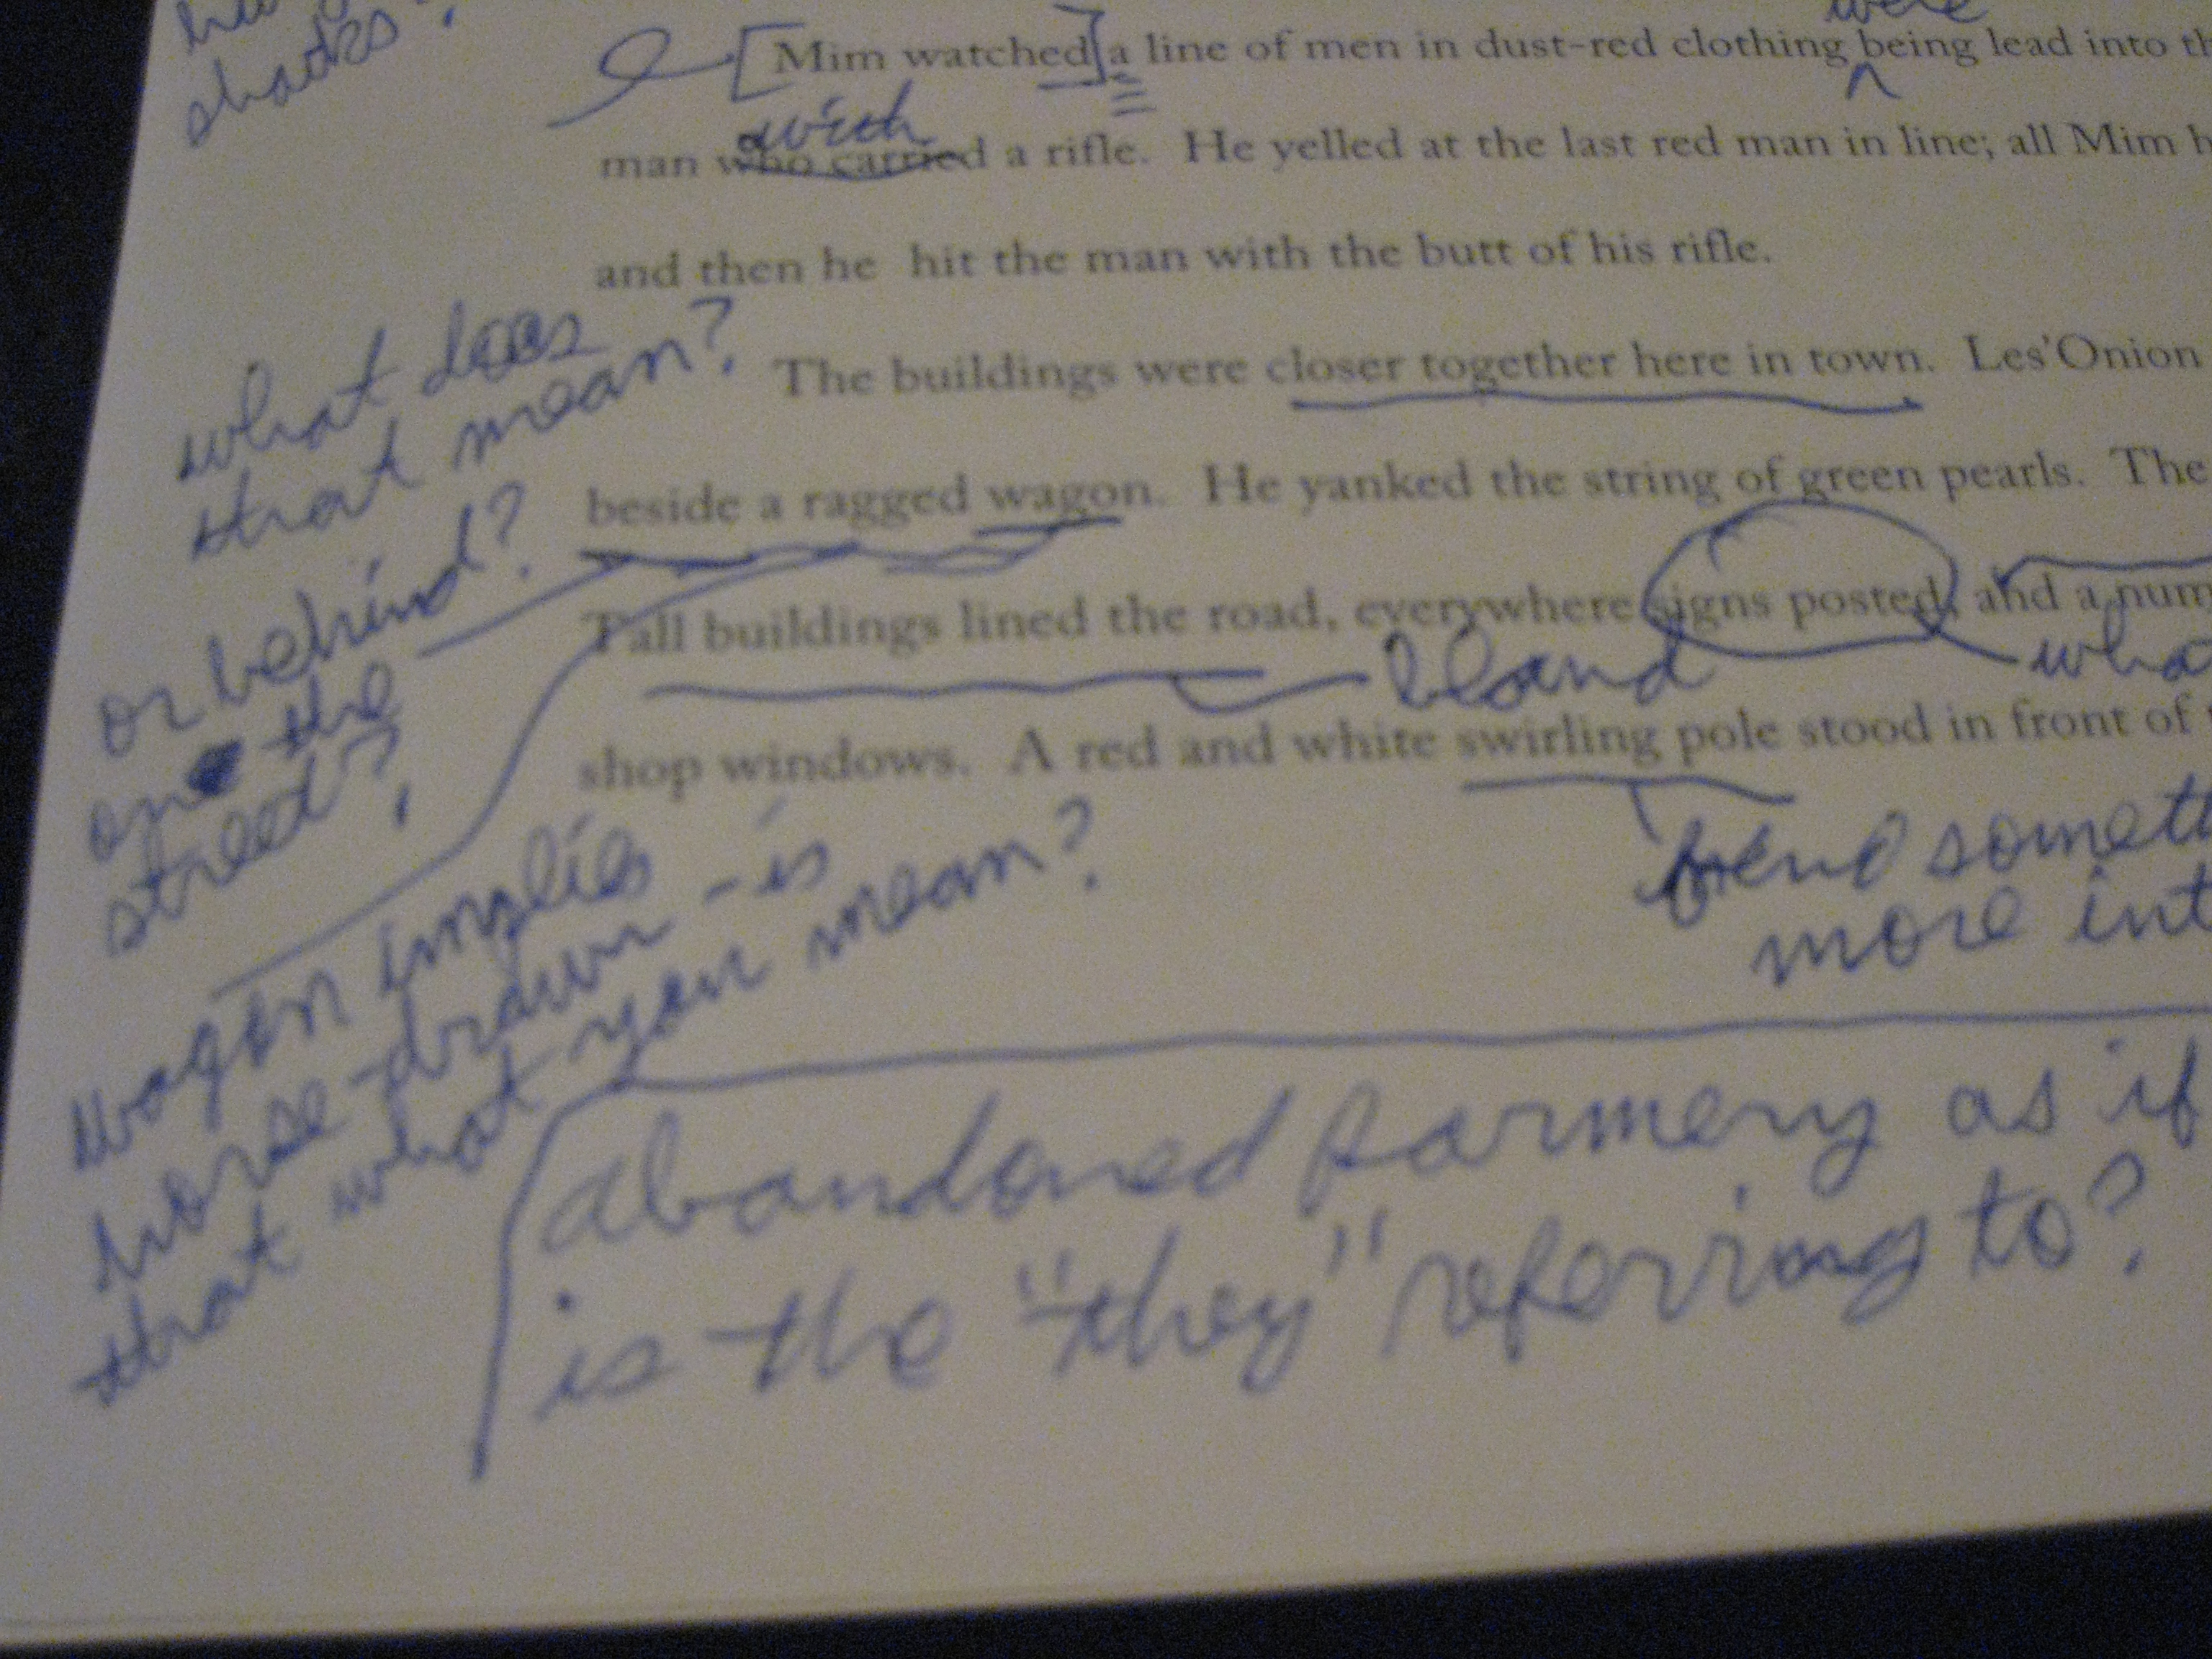 shacks?
were
[Mim watched] a line of men in dust-red clothing being lead into
with
man who carried a rifle. He yelled at the last red man in line; all Mim
and then he hit the man with the butt of his rifle.
what does
that mean?
The buildings were closer together here in town. Les'Onion
beside a ragged wagon. He yanked the string of green pearls. The
or behind?
on the
street?
Tall buildings lined the road, everywhere signs posted, and a num
bland
wha
shop windows. A red and white swirling pole stood in front of
find someth
more int
wagon implies
horse-drawn - is
that what you mean?
abandoned farmery as if
is the "they" referring to?